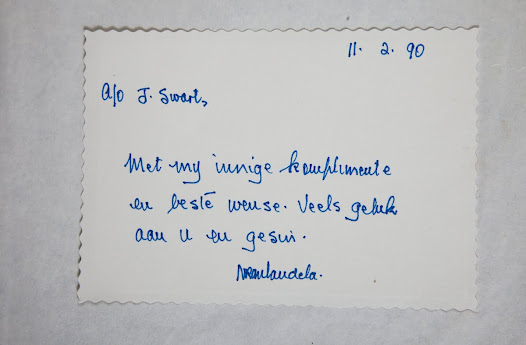 11. 2. 90
A/O J. Swart,
Met my innige komplimente
en beste wense. Veels geluk
aan u en gesin.
NRMandela.